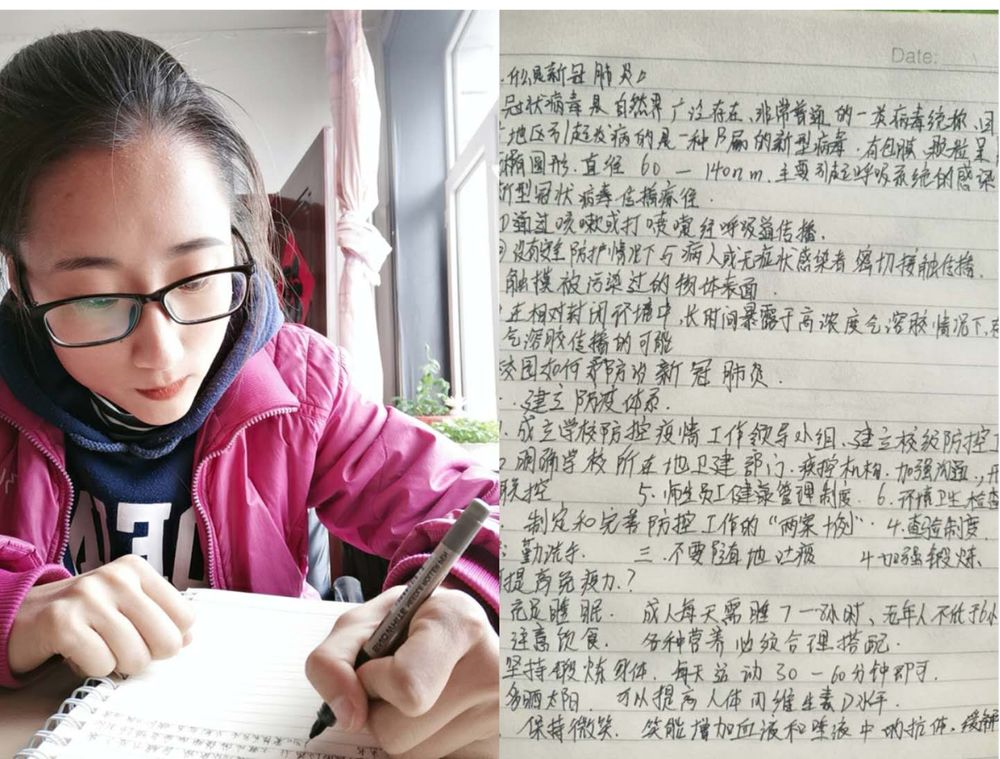 Date:
什么是新冠肺炎?
冠状病毒是自然界广泛存在、非常普通的一类病毒统称,因
地区引起疫病的是一种β属的新型病毒.有包膜.颗粒呈
椭圆形.直径60—140nm.主要引起呼吸系统的感染
新型冠状病毒传播途径.
①通过咳嗽或打喷嚏经呼吸道传播.
没有安全防护情况下与病人或无症状感染者密切接触传播.
触摸被污染过的物体表面.
在相对封闭环境中,长时间暴露于高浓度气溶胶情况下,
气溶胶传播的可能
校园如何预防新冠肺炎.
建立防疫体系.
1.成立学校防控疫情工作领导小组、建立校级防控工
2.明确学校所在地卫建部门.疾控机构.加强沟通.,开
联控 5.师生员工健康管理制度 6.环境卫生检查
制定和完善防控工作的"两案 例" 4.查验制度.
勤洗手. 三.不要随地吐痰 4加强锻炼.
提高免疫力?
充足睡眠. 成人每天需睡7—8小时、老年人不低于6小
注意饮食. 各种营养必须合理搭配.
坚持锻炼身体.每天运动30—60分钟即可.
多晒太阳. 可以提高人体内维生素D水平.
保持微笑. 笑能增加血液和唾液中的抗体.缓解